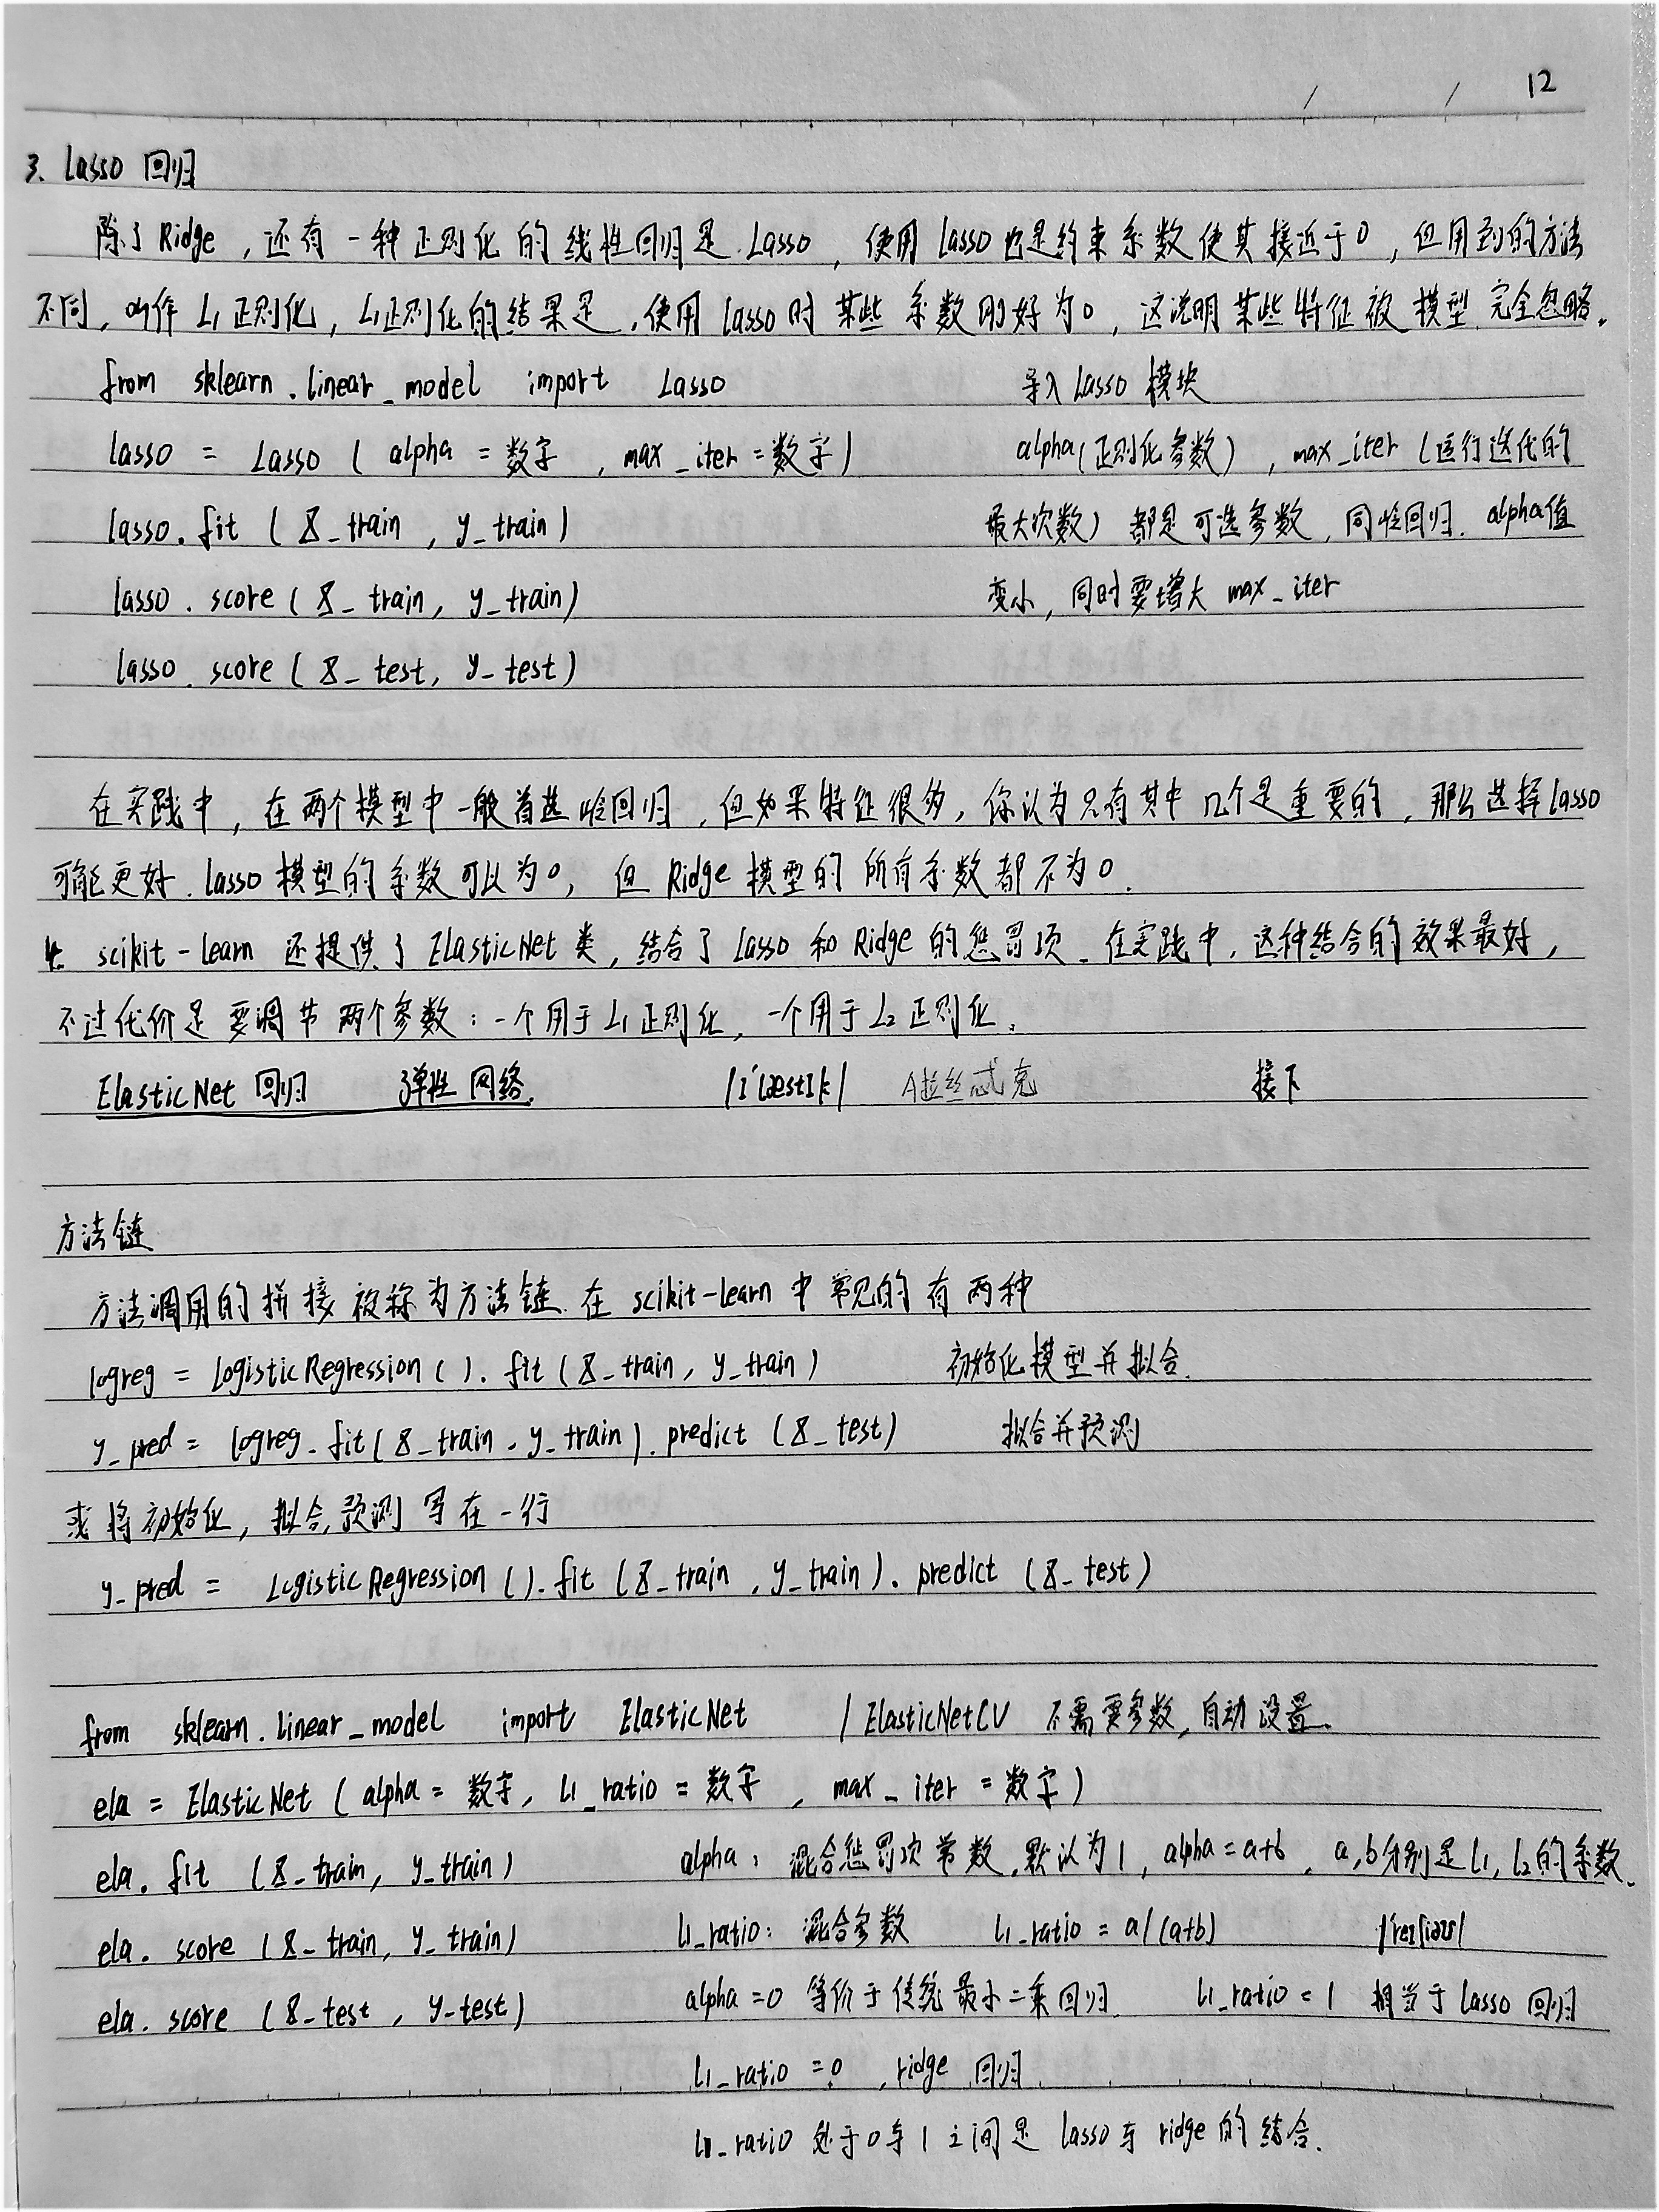 12
3、Lasso 回归
除了 Ridge，还有一种正则化的线性回归是 Lasso，使用 lasso 也是约束系数使其接近于0，但用到的方法
不同，叫作 L1 正则化，L1正则化的结果是，使用 lasso 时某些系数刚好为0，这说明某些特征被模型完全忽略。
from sklearn.linear_model import Lasso 导入 Lasso 模块
lasso = Lasso ( alpha = 数字 , max_iter = 数字 ) alpha(正则化参数) , max_iter (运行迭代的
lasso.fit ( X_train , y_train ) 最大次数) 都是可选参数，同岭回归. alpha值
lasso.score ( X_train, y_train ) 变小，同时要增大 max_iter
lasso.score ( X_test, y_test )
在实践中，在两个模型中一般首选岭回归，但如果特征很多，你认为只有其中几个是重要的，那么选择lasso
可能更好. lasso 模型的系数可以为0，但 Ridge 模型的所有系数都不为0.
4. scikit-learn 还提供了 ElasticNet 类，结合了 Lasso 和 Ridge 的惩罚项. 在实践中，这种结合的效果最好，
不过代价是要调节两个参数：一个用于 L1 正则化，一个用于 L2 正则化。
ElasticNet 回归 弹性网络. /ɪ'læstɪk/ 接下
方法链
方法调用的拼接被称为方法链. 在 scikit-learn 中常见的有两种
logreg = LogisticRegression ( ). fit ( X_train, y_train ) 初始化模型并拟合.
y_pred = logreg. fit ( X_train, y_train ). predict ( X_test ) 拟合并预测
或将初始化，拟合，预测写在一行
y_pred = LogisticRegression ( ). fit ( X_train , y_train ). predict ( X_test )
from sklearn.linear_model import ElasticNet / ElasticNetCV 不需要参数，自动设置.
ela = ElasticNet ( alpha = 数字, l1_ratio = 数字 , max_iter = 数字 )
ela. fit ( X_train, y_train ) alpha : 混合惩罚项常数，默认为1, alpha = a+b , a,b分别是 l1, l2的系数.
ela. score ( X_train, y_train ) l1_ratio: 混合参数 l1_ratio = a/(a+b) /'reɪʃiəʊ/
ela. score ( X_test , y_test ) alpha = 0 等价于传统最小二乘回归. l1_ratio = 1 相当于 lasso 回归
l1_ratio = 0 , ridge 回归.
l1_ratio 处于0与1之间是 lasso 与 ridge 的结合.